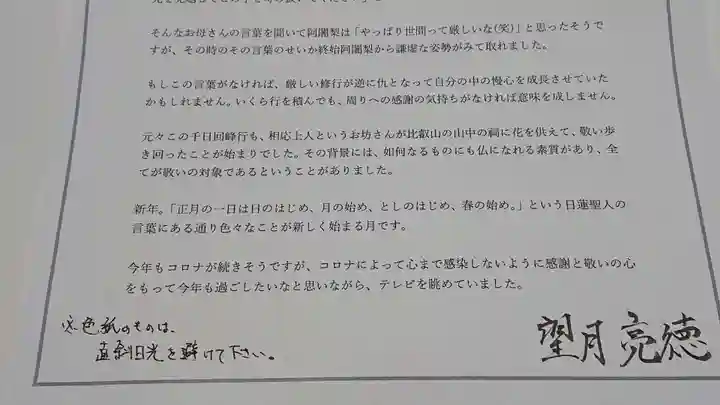 そんなお母さんの言葉を聞いて阿闍梨は「やっぱり世間って厳しいな(笑)」と思ったそうで
すが、その時のその言葉のせいか終始阿闍梨から謙虚な姿勢がみて取れました。
もしこの言葉がなければ、厳しい修行が逆に仇となって自分の中の慢心を成長させていた
かもしれません。いくら行を積んでも、周りへの感謝の気持ちがなければ意味を成しません。
元々この千日回峰行も、相応上人というお坊さんが比叡山の山中の祠に花を供えて、敬い歩
き回ったことが始まりでした。その背景には、如何なるものにも仏になれる素質があり、全
てが敬いの対象であるということがありました。
新年。「正月の一日は日のはじめ、月の始め、としのはじめ、春の始め。」という日蓮聖人の
言葉にある通り色々なことが新しく始まる月です。
今年もコロナが続きそうですが、コロナによって心まで感染しないように感謝と敬いの心
をもって今年も過ごしたいなと思いながら、テレビを眺めていました。
※色紙のものは、
直射日光を避けて下さい。
望月亮徳